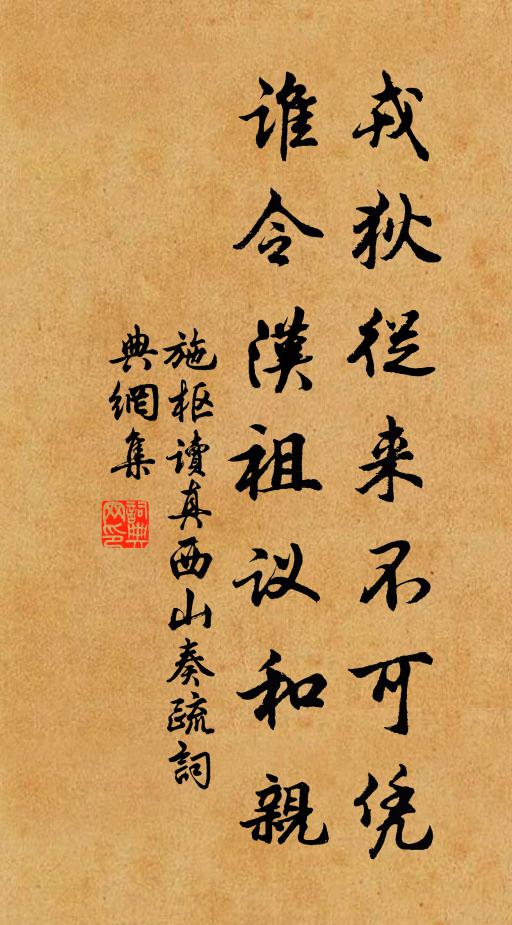 戎狄從来不可凭
谁令漢祖议和親
施枢讀真西山奏疏詞
典網集
詞典网印